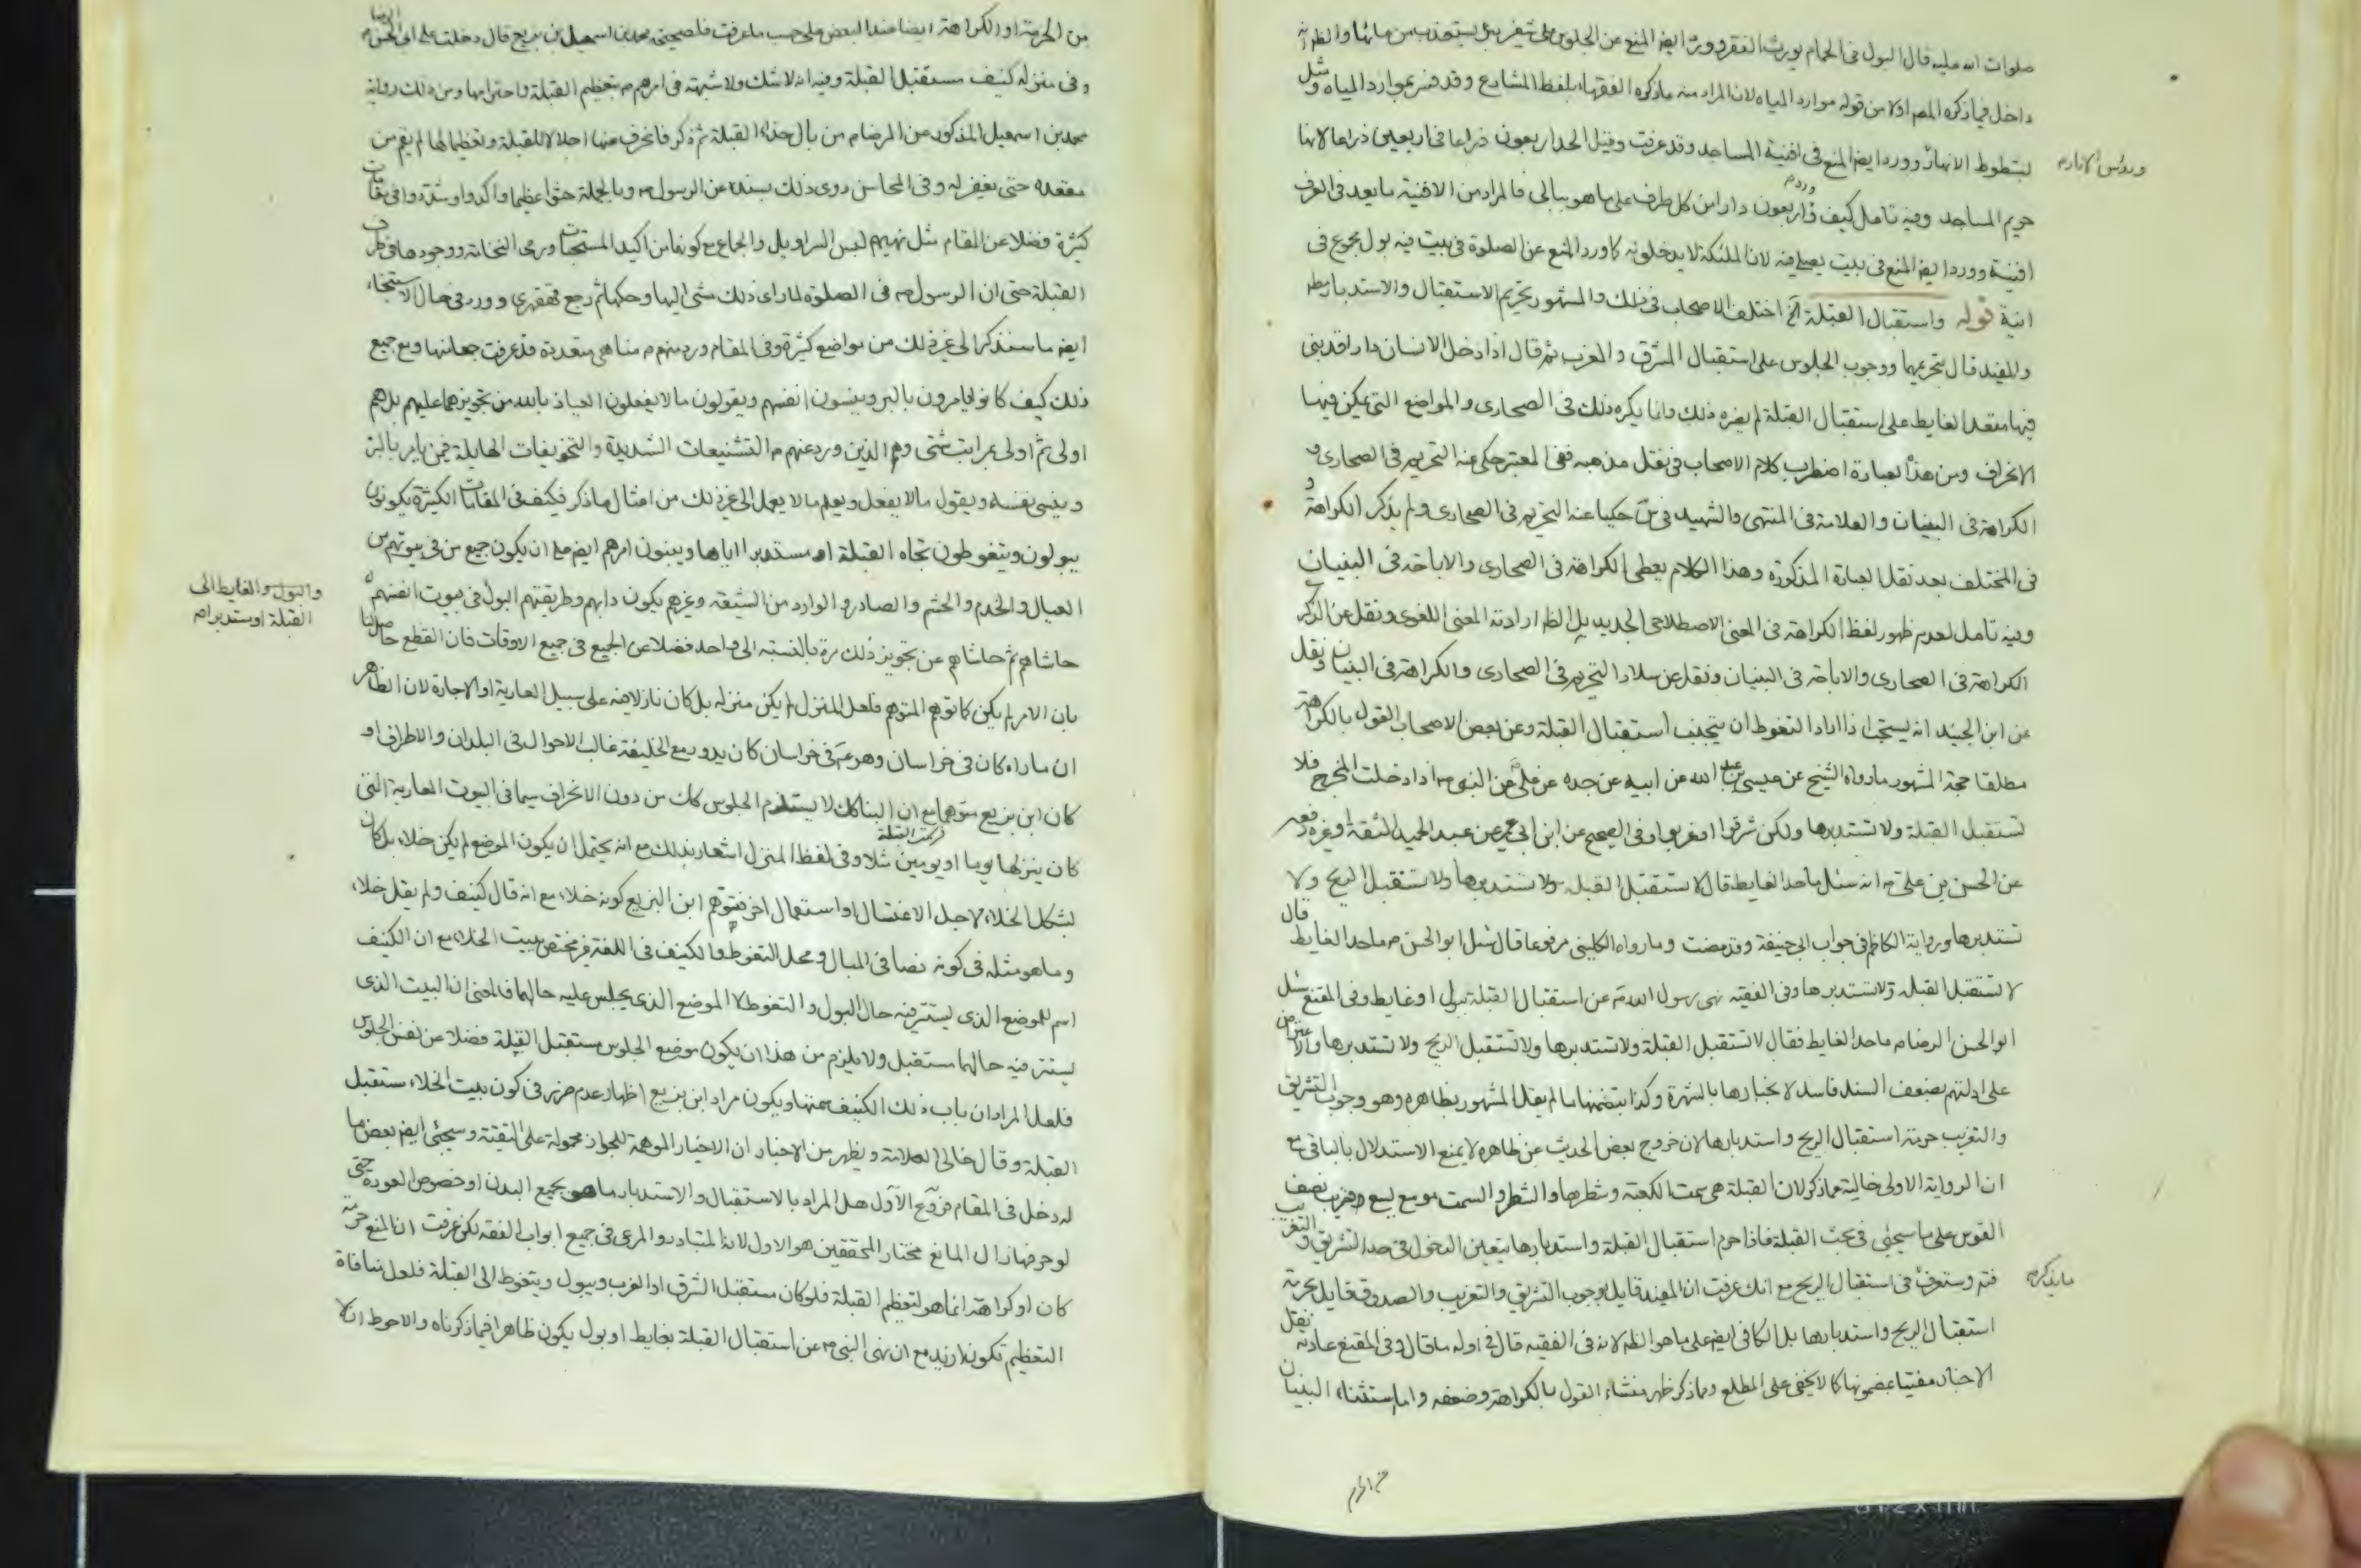 صلوات الله عليه قال البول في الحمام يورث الفقر وورد ايضا المنع عن الجلوس على شفير بئر يستعذب من مائها والظاهر انه
داخل فيما ذكره المص اولا من قوله موارد المياه لان المراد منه ما ذكره الفقهاء بلفظ المشارع وقد فسر بموارد المياه مثل
شطوط الانهار وورد ايضا المنع في افنية المساجد وقد عرفت وقيل الحد اربعون ذراعا في اربعين ذراعا لانها
وروس الابار م
حريم المساجد وفيه تامل كيف وورد اربعون دارا من كل طرف على ما هو ببالي فالمراد من الافنية ما يعد في العرف
افنية وورد ايضا المنع في بيت يصلى فيه لان الملئكة لا يدخلونه كما ورد المنع عن الصلوة في بيت فيه بول مجموع في
انية قوله واستقبال القبلة الخ اختلف الاصحاب في ذلك والمشهور تحريم الاستقبال والاستدبار مطلقا
والمفيد قال بتحريمها ووجوب الجلوس على استقبال المشرق والمغرب ثم قال اذا دخل الانسان دارا قد بنى
فيها مقعد الغايط على استقبال القبلة لم يضره ذلك وانما يكره ذلك في الصحارى والمواضع التي يمكن فيها
الانحراف ومن هذه العبارة اضطرب كلام الاصحاب في نقل مذهبه ففي المعتبر حكى عنه التحريم في الصحارى و
الكراهة في البنيان والعلامة في المنتهى والشهيد في حكيا عنه التحريم في الصحارى ولم يذكر الكراهة و
في المختلف بعد نقل العبارة المذكورة وهذا الكلام يعطى الكراهة في الصحارى والاباحة في البنيان
وفيه تامل لعدم ظهور لفظ الكراهة في المعنى الاصطلاحي الجديد بل الظاهر ارادته المعنى اللغوي ونقل عن الذكرى
الكراهة في الصحارى والاباحة في البنيان ونقل عن سلار التحريم في الصحارى والكراهة في البنيان ونقل
عن ابن الجنيد انه يستحب اذا اراد التغوط ان يتجنب استقبال القبلة وعن بعض الاصحاب القول بالكراهة
مطلقا حجة المشهور ما رواه الشيخ عن عيسى بن عبد الله عن ابيه عن جده عن علي عن النبي ص اذا دخلت المخرج فلا
تستقبل القبلة ولا تستدبرها ولكن شرقوا او غربوا وفي الصحيح عن ابن ابي عمير عن عبد الحميد الثقة او غيره رفعه
عن الحسن بن علي انه سئل ما حد الغايط قال لا تستقبل القبلة ولا تستدبرها ولا تستقبل الريح ولا
تستدبرها ورواية الكاظم في جواب ابي حنيفة وقد مضت وما رواه الكليني مرفوعا قال سئل ابو الحسن م ما حد الغايط قال
لا تستقبل القبلة ولا تستدبرها وفي الفقيه نهى رسول الله ص عن استقبال القبلة ببول او غايط وفي المقنع سئل
ابو الحسن الرضا م ما حد الغايط فقال لا تستقبل القبلة ولا تستدبرها ولا تستقبل الريح ولا تستدبرها والاعتراض
على ادلتهم بضعف السند فاسد لانجبارها بالشهرة وكذا بتضمنها ما لم يقل المشهور بظاهره وهو وجوب التشريق
والتغريب حرمة استقبال الريح واستدبارها لان خروج بعض الحديث عن ظاهره لا يمنع الاستدلال بالباقي مع
ان الرواية الاولى خالية عما ذكر لان القبلة هي سمت الكعبة وشطرها والشطر والسمت موسع يسع قريب نصف
القوس على ما سيجئ في بحث القبلة فاذا حرم استقبال القبلة واستدبارها يتعين الدخول في حد التشريق والتغريب
فتم وستعرف في استقبال الريح مع انك عرفت ان المفيد قايل بوجوب التشريق والتغريب والصدوق قايل بحرمة
ما يذكره
استقبال الريح واستدبارها بل الكافي ايضا على ما هو الظاهر لانه في الفقيه قال في اوله ما قال وفي المقنع عادته نقل
الاخبار مفتيا بمضمونها كما لا يخفى على المطلع ومما ذكر ظهر منشاء القول بالكراهة وضعفه واما استثناء البنيان
من الحرمة او الكراهة ايضا عند البعض على حسب ما عرفت فلصحيحة محمد بن اسمعيل بن بزيع قال دخلت على ابي الحسن الرضا م
وفي منزله كنيف مستقبل القبلة وفيه انه لا شك ولا شبهة في امرهم م بتعظيم القبلة واحترامها ومن ذلك رواية
محمد بن اسمعيل المذكور عن الرضا م من بال حذاء القبلة ثم ذكر فانحرف عنها اجلالا للقبلة وتعظيما لها لم يقم من
مقعده حتى يغفر له وفي المحاسن روى ذلك بسنده عن الرسول ص وبالجملة حثوا عظيما واكدوا وشددوا في مقامات
كثيرة فضلا عن المقام مثل نهيهم لبس السراويل والجماع مع كونهما من اكيد المستحبات ورمى النخامة ووجودها في طرف
القبلة حتى ان الرسول ص في الصلوة لما راى ذلك مشى اليها وحكها ثم رجع قهقرى وورد في حال الاستنجاء
ايضا ما سنذكر الى غير ذلك من مواضع كثيرة وفي المقام ورد منهم م مناهي متعددة قد عرفت جملتها ومع جميع
ذلك كيف كانوا يامرون بالبر وينسون انفسهم ويقولون ما لا يفعلون العياذ بالله من تجويزهما عليهم بل هم
اولى ثم اولى بمراتب شتى وهم الذين ورد عنهم م التشنيعات الشديدة والتخويفات الهايلة فيمن يامر بالبر
وينسى نفسه ويقول ما لا يفعل ويعلم ما لا يعمل الى غير ذلك من امثال ما ذكر فكيف في المقامات الكثيرة يكونون
يبولون ويتغوطون تجاه القبلة او مستدبرا اياها ويبنون امرهم ايضا على ان يكون جميع من في بيوتهم من
العيال والخدم والحشم والصادر والوارد من الشيعة وغيرهم يكون دابهم وطريقتهم البول في بيوت انفسهم
والبول والغايط الى
القبلة او مستدبرا م
حاشاهم ثم حاشاهم عن تجويز ذلك مرة بالنسبة الى واحد فضلا عن الجميع في جميع الاوقات فان القطع حاصل لنا
بان الامر لم يكن كما توهم المتوهم فلعل المنزل لم يكن منزله بل كان نازلا فيه على سبيل العارية او الاجارة لان الظاهر
ان ما راه كان في خراسان وهو م في خراسان كان يدور مع الخليفة غالب الاحوال في البلدان والاطراف او
كان ابن بزيع متوهما مع ان البناء كان لا يستلزم الجلوس كك من دون الانحراف سيما في البيوت العارية التي
كان ينزلها يوما او يومين مثلا وفي لفظ المنزل اشعار بذلك مع انه يحتمل ان يكون الموضع لم يكن خلاء بل كان
بشكل الخلاء لاجل الاغتسال او استعمال اخر فتوهم ابن البزيع كونه خلاء مع انه قال كنيف ولم يقل خلاء
وما هو مثله في كونه نصا في المبال ومحل التغوط والكنيف في اللغة غير مختص ببيت الخلاء مع ان الكنيف
اسم للموضع الذي يستتر فيه حال البول والتغوط لا الموضع الذي يجلس عليه حالهما فالمعنى ان البيت الذي
يستتر فيه حالهما مستقبل ولا يلزم من هذا ان يكون موضع الجلوس مستقبل القبلة فضلا عن نفس الجلوس
فلعل المراد ان باب ذلك الكنيف سمتها ويكون مراد ابن بزيع اظهار عدم ضرر في كون بيت الخلاء مستقبل
القبلة وقال خالي العلامة ويظهر من الاخبار ان الاخبار الموهمة للجواز محمولة على التقية وسيجئ ايضا بعض ما
له دخل في المقام فروع الاول هل المراد بالاستقبال والاستدبار ما هو بجميع البدن او خصوص العورة حتى
لو حرفها زال المانع مختار المحققين هو الاول لانه المتبادر والمرعى في جميع ابواب الفقه لكن عرفت ان المنع حرمة
كان او كراهة انما هو لتعظيم القبلة فلو كان مستقبل الشرق او الغرب ويبول ويتغوط الى القبلة فلعل منافاة
التعظيم تكون ازيد مع ان نهى النبي ص عن استقبال القبلة بغايط او بول يكون ظاهرا فيما ذكرناه والاحوط ان لا